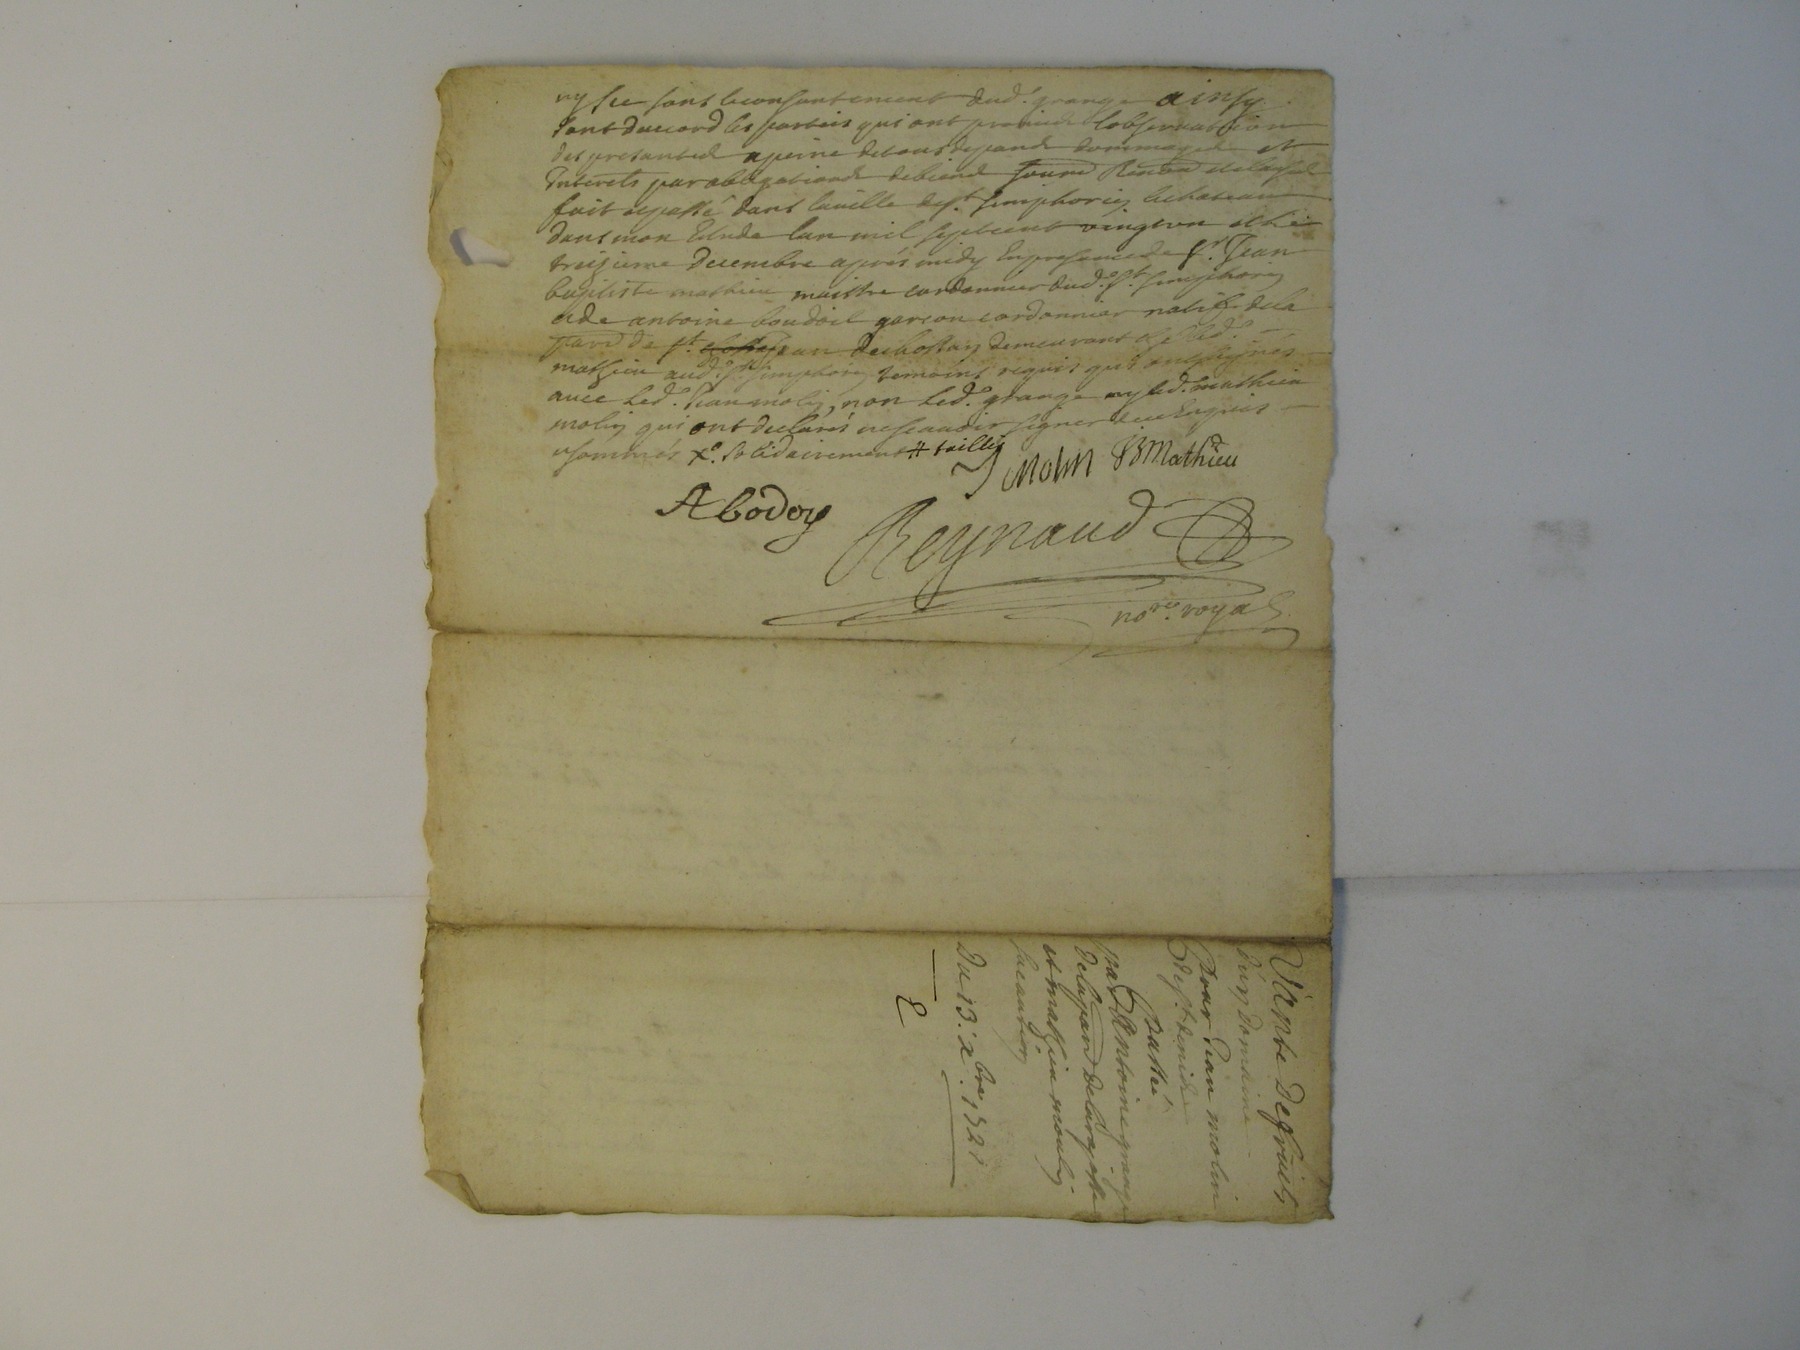 ny sce sans le consantement dud.t grange ainsy
sont daccord les parties qui ont promis lobservation
des presantes a peine de tous depans dommages et
Interets par obligations de biens soumis Renon et clauses
fait et passé dans la ville de st. simphorien le chateau
dans mon Etude lan mil sept cent vingt un et le
treizieme decembre apres midy En presance de sr. Jean
baptiste mathieu maistre cordonnier dud.t st. simphorien
et de antoine boudoil garcon cordonnier natif de la
par.se de st. Jean demeurant chez led.t
mathieu aud.t st. simphorien temoins requis qui ont signés
avec led.t Jean molin, non led.t grange ny led.t mathieu
molin qui ont declarés ne scavoir signer de ce Enquis
et sommés x.e solidairement # tailles
J Molin JB Mathieu
A bodoy
Reynaud
no.re royal
Vante de fruits
dun domaine
pour Jean molin
de st. denis
passé
par Antoine grange
de la par.se de larajasse
et mathieu moulin
sa caution
Du 13. x.bre 1721
2